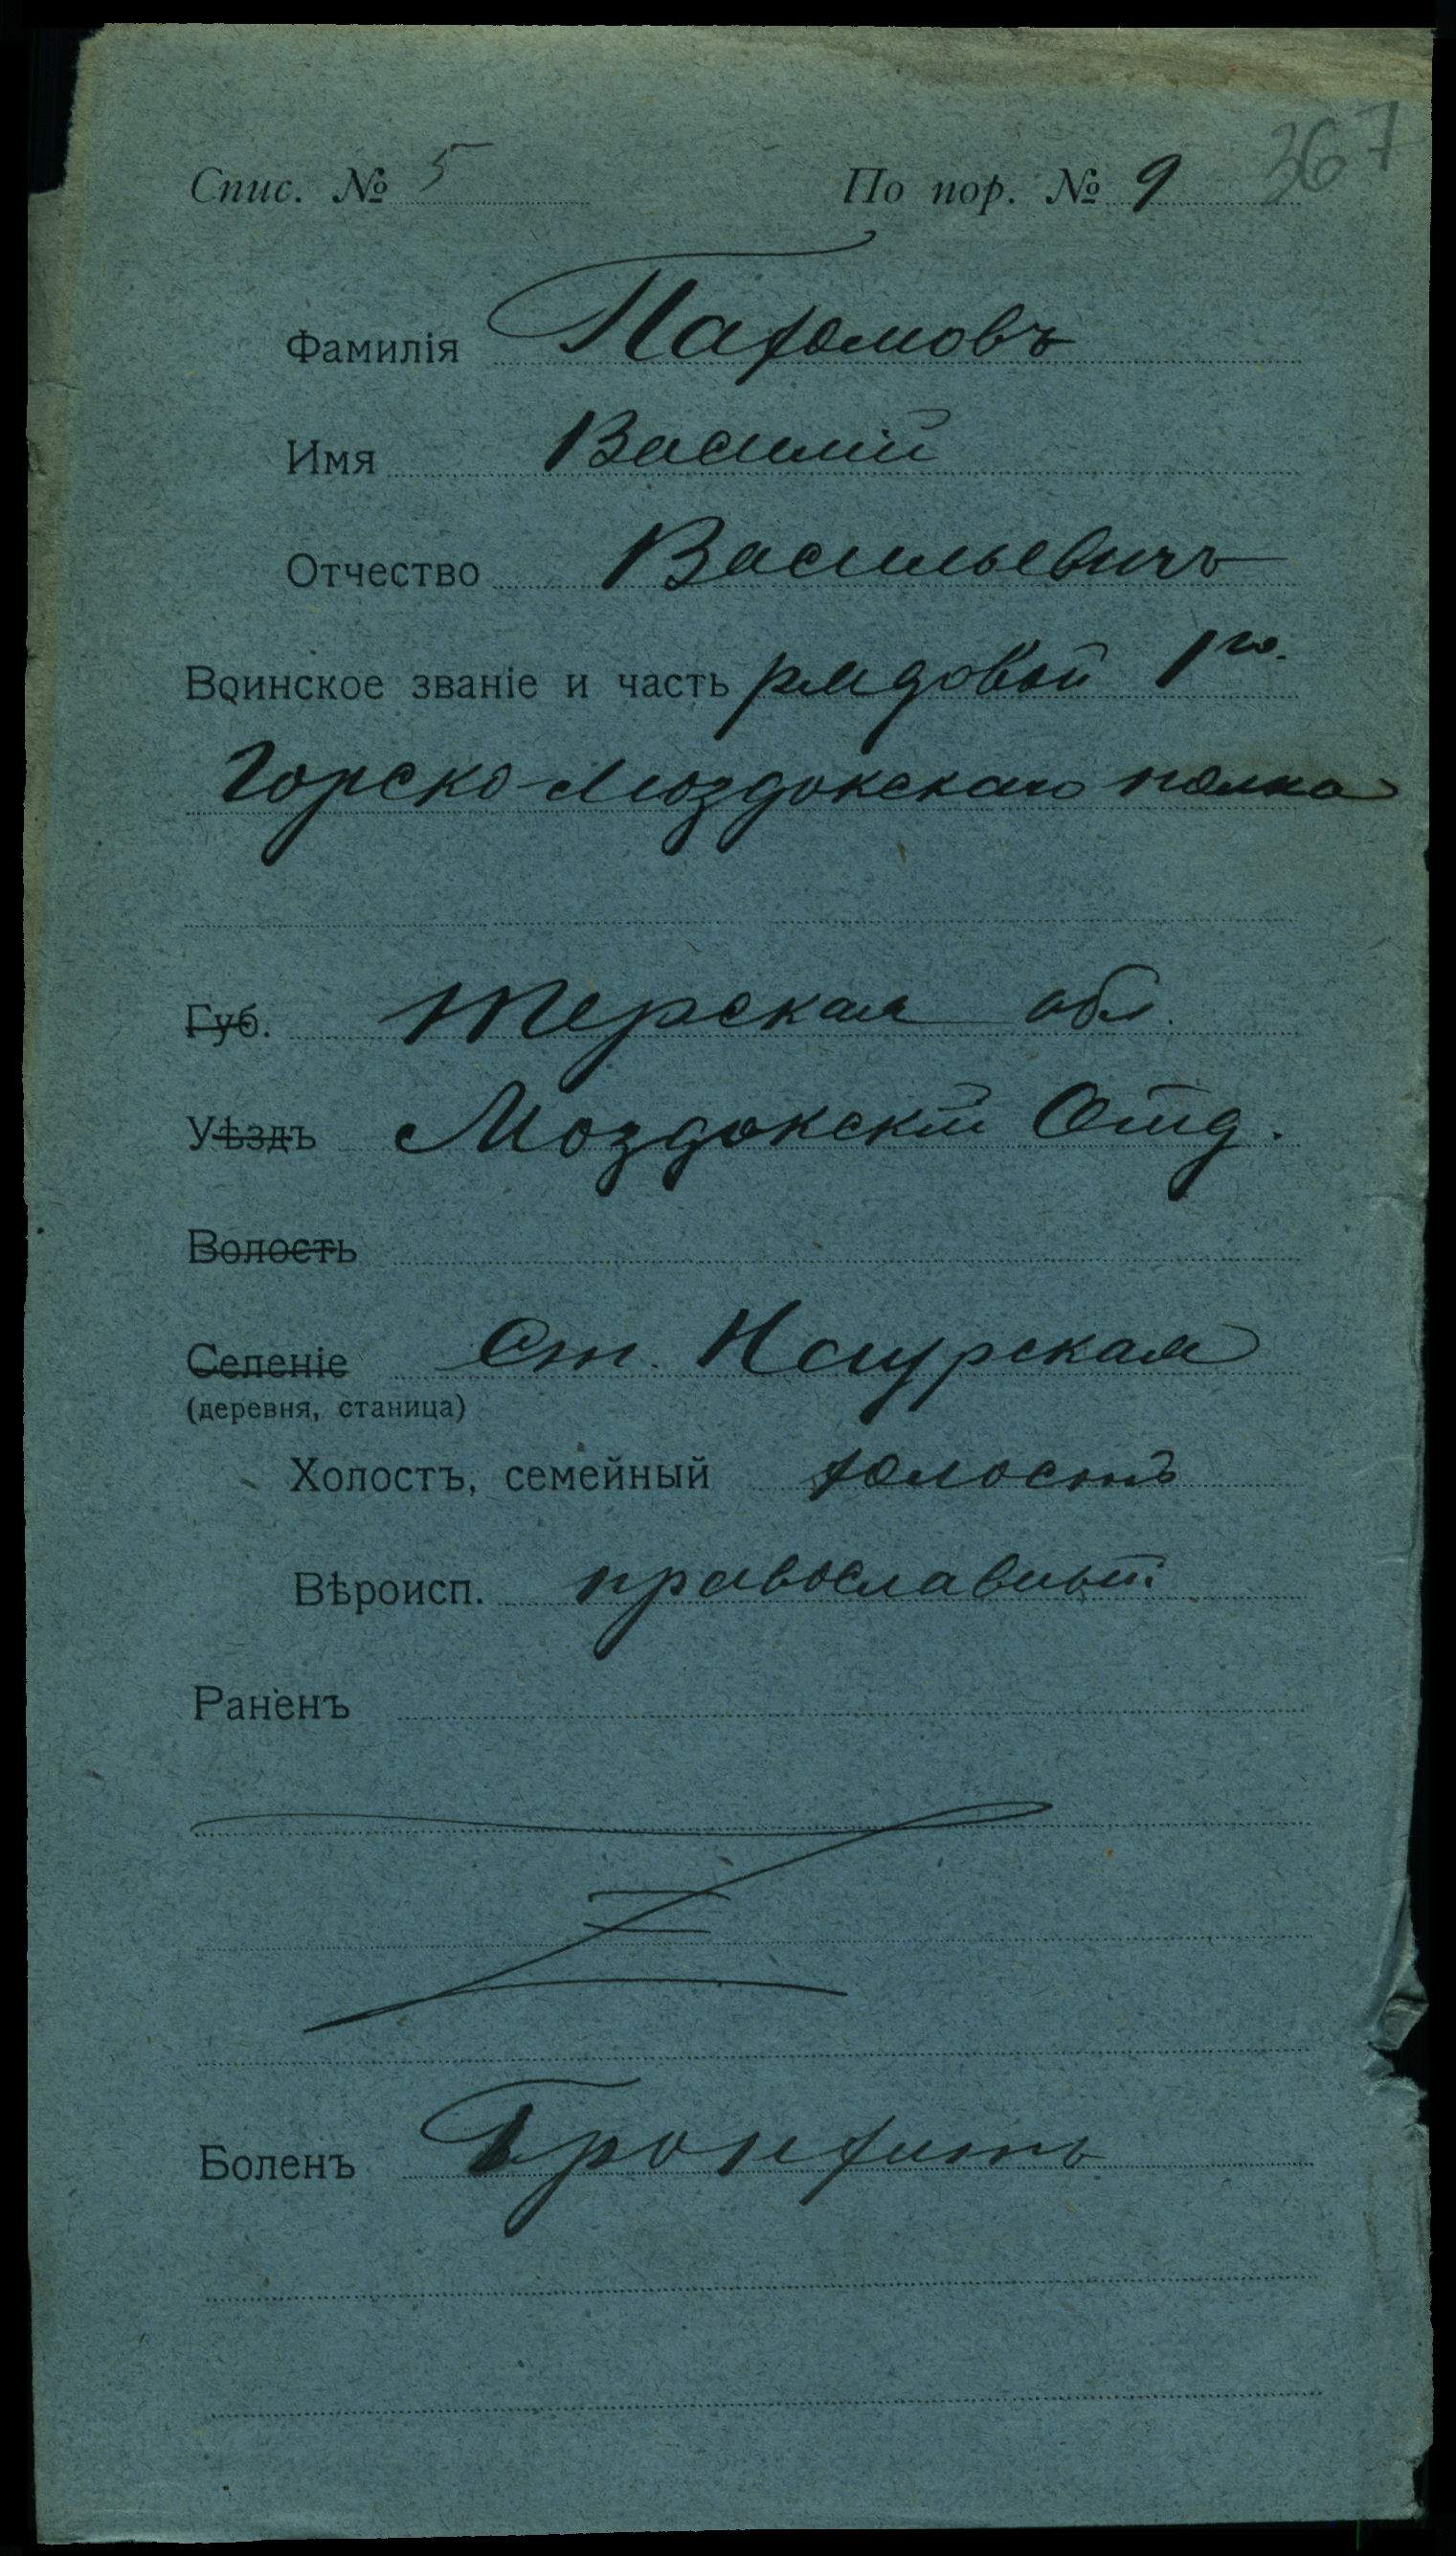 367
Спис. № 5 По пор. № 9
Фамилія Пахомовъ
Имя Василій
Отчество Васильевичъ
Воинское званіе и часть рядовой 1го.
Горско-Моздокскаго полка
Губ. Терская обл.
Уѣздъ Моздокскій Отд.
Волость
Селеніе Ст. Наурская
(деревня, станица)
Холостъ, семейный холостъ
Вѣроисп. православный
Раненъ
Боленъ Бронхитъ